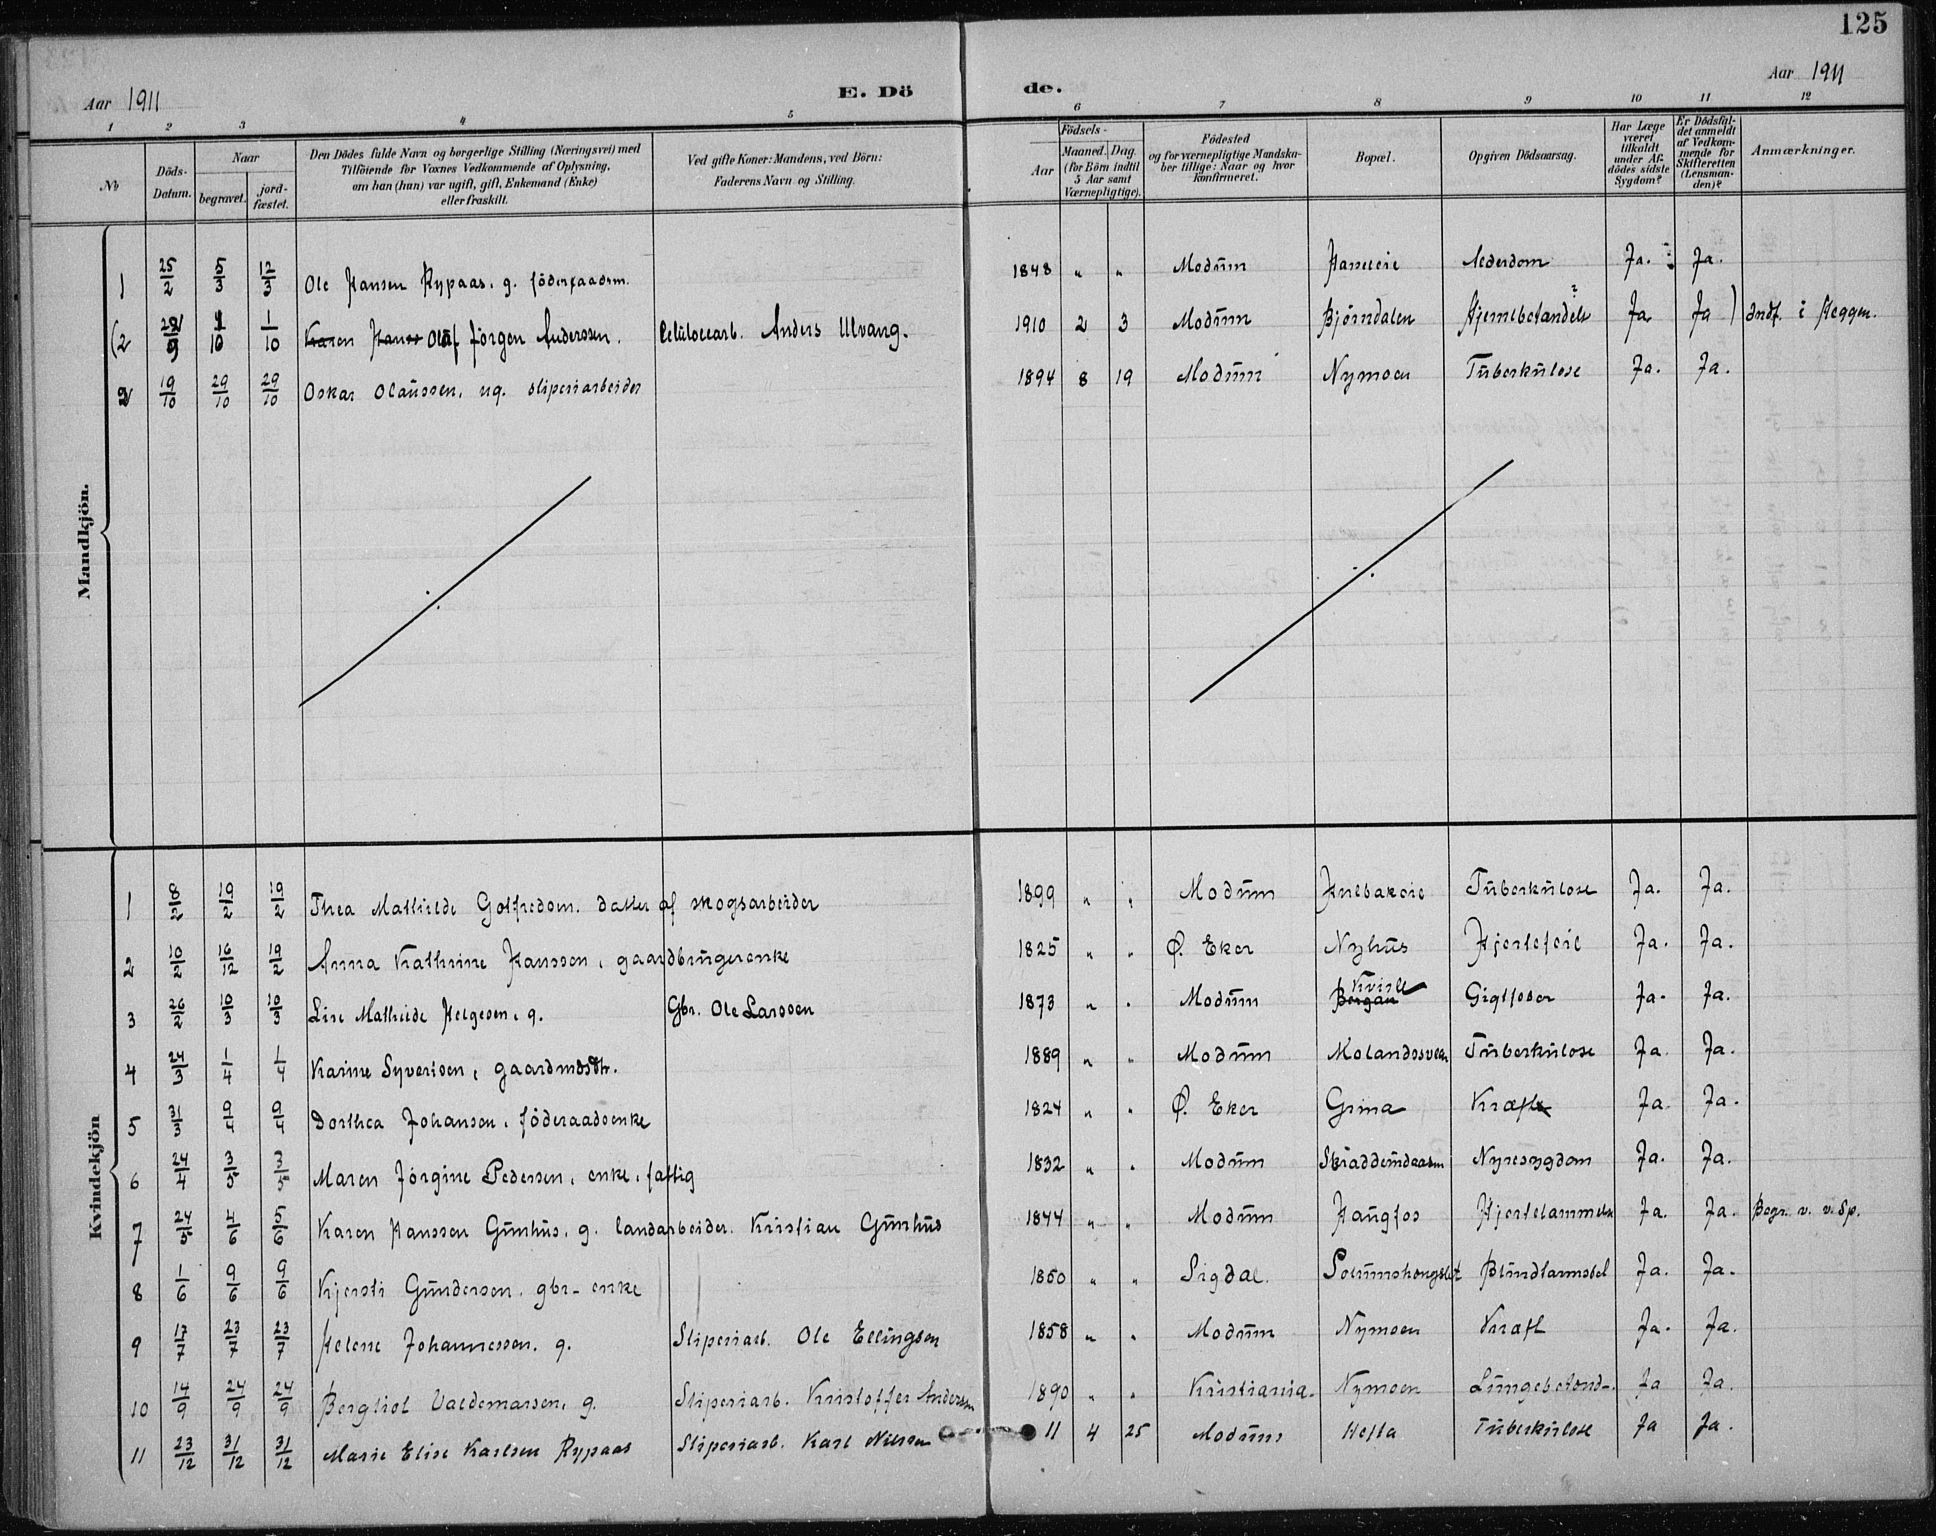 125
Aar 1911
E. Dö
de.
Aar 1911
1 2 3 4 5 6 7 8 9 10 11 12
No
Döds-Datum.
Naar
begravet.
jord-fæstet.
Den Dödes fulde Navn og borgerlige Stilling (Næringsvei) med
Tilföiende for Voxnes Vedkommende af Oplysning,
om han (hun) var ugift, gift, Enkemand (Enke)
eller fraskilt.
Ved gifte Koner: Mandens, ved Börn:
Faderens Navn og Stilling.
Födsels-
Aar
Maaned. Dag.
(for Börn indtil
5 Aar samt
Værnepligtige).
Födested
og for værnepligtige Mandska-
ber tillige: Naar og hvor
konfirmeret.
Bopæl.
Opgiven Dödsaarsag.
Har Læge
været
tilkaldt
under Af-
dödes sidste
Sygdom?
Er Dödsfal-
det anmeldt
af Vedkom-
mende for
Skifteretten
(Lensman-
den)?
Anmærkninger.
Mandkjön.
1 25/2 5/3 12/3 Ole Hansen Rypaas. g. föderaadsm. 1848 " " Modum Alderdom Ja. Ja.
(2 29/9 1/10 1/10 Karen Hans Olaf Jörgen Anderssen. Celulocearb. Anders Ulvang. 1910 2 3 Modum Bjørndalen Ja Ja ) Indf. i Heggen.
2 19/10 29/10 29/10 Oskar Olaussen, ug. sliperiarbeider 1894 8 19 Modum Nymoen Tuberkulose Ja. Ja.
Kvindekjön
1 8/2 19/2 19/2 Thea Mathilde Gotfredsen. datter af skogsarbeider 1899 " " Modum Tuberkulose Ja. Ja.
2 10/2 16/12 19/2 Anna Kathrine Hanssen, gaardbrugerenke 1825 " " Ø. Eker Nyhus Hjertefeil Ja. Ja.
3 26/2 10/3 10/3 Lise Mathilde Helgesen, g. Gbr. Ole Larssen 1873 " " Modum Bergan Kvisle Gigtfeber Ja. Ja.
4 24/3 1/4 1/4 Karine Syversen, gaardmdsdtr. 1889 " " Modum Tuberkulose Ja. Ja.
5 31/3 9/4 9/4 Dorthea Johansen, föderaadsenke 1824 " " Ø. Eker Grina Kræft Ja. Ja.
6 24/4 3/5 3/5 Maren Jörgine Pedersen, enke, fattig 1832 " " Modum Nyresygdom Ja. Ja.
7 24/5 4/6 5/6 Karen Hanssen Gunhus, g. landarbeider. Kristian Gunhus 1844 " " Modum Haugfos Hjertelammelse Ja. Ja. Begr. v. v. Sp.
8 1/6 9/6 9/6 Kjersti Gundersen, gbr-enke 1850 " " Sigdal. Blindtarmsbet Ja. Ja.
9 17/7 23/7 23/7 Helene Johannessen. g. Sliperiarb. Ole Ellingsen 1858 " " Modum Nymoen Kræft Ja. Ja.
10 14/9 24/9 24/9 Bergliot Valdemarsen, g. Sliperiarb. Kristoffer Andersen 1890 " " Kristiania. Nymoen Lungebetænd-. Ja Ja.
11 23/12 31/12 31/12 Marie Elise Karlsen Rypaas Sliperiarb. Karl Nilsen 11 4 25 Modum Hesla Tuberkulose Ja Ja.